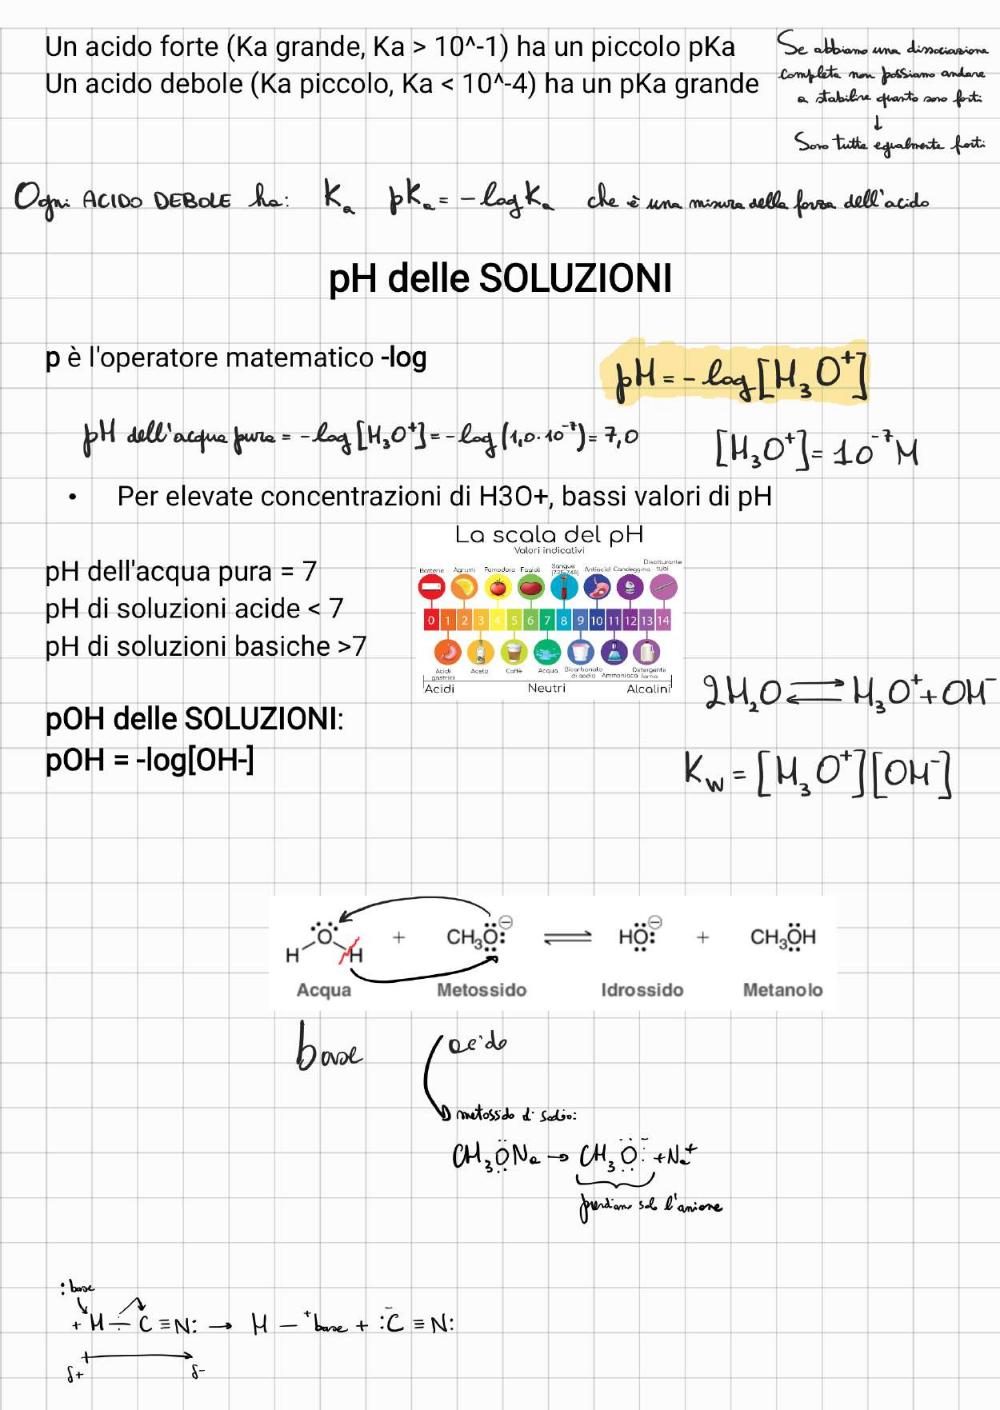 Un acido forte (Ka grande, Ka > 10^-1) ha un piccolo pKa
Un acido debole (Ka piccolo, Ka < 10^-4) ha un pKa grande
Se abbiamo una dissociazione
completa non possiamo andare
a stabilire quanto sono forti
↓
Sono tutte egualmente forti
Ogni ACIDO DEBOLE ha: Ka pKa = -logKa che è una misura della forza dell'acido
pH delle SOLUZIONI
p è l'operatore matematico -log
pH = -log[H₃O⁺]
pH dell'acqua pura = -log[H₃O⁺] = -log(1,0·10⁻⁷) = 7,0
[H₃O⁺] = 10⁻⁷M
• Per elevate concentrazioni di H3O+, bassi valori di pH
La scala del pH
Valori indicativi
Batterie Agrumi Pomodoro Fagioli Sangue Antiacidi Candeggina Disotturante tubi
0 1 2 3 4 5 6 7 8 9 10 11 12 13 14
Acidi gastrici Aceto Caffè Acqua Bicarbonato di sodio Ammoniaca Detergente forno
Acidi Neutri Alcalini
pH dell'acqua pura = 7
pH di soluzioni acide < 7
pH di soluzioni basiche >7
2H₂O ⇌ H₃O⁺ + OH⁻
pOH delle SOLUZIONI:
pOH = -log[OH-]
Kw = [H₃O⁺][OH⁻]
H O H + CH₃O:⊖ ⇌ HO:⊖ + CH₃OH
Acqua Metossido Idrossido Metanolo
base acido
metossido di sodio:
CH₃ONa → CH₃O:⁻ + Na⁺
prendiamo solo l'anione
:base
+ H — C ≡ N: → H — ⁺base + :C̄ ≡ N:
δ+ δ-